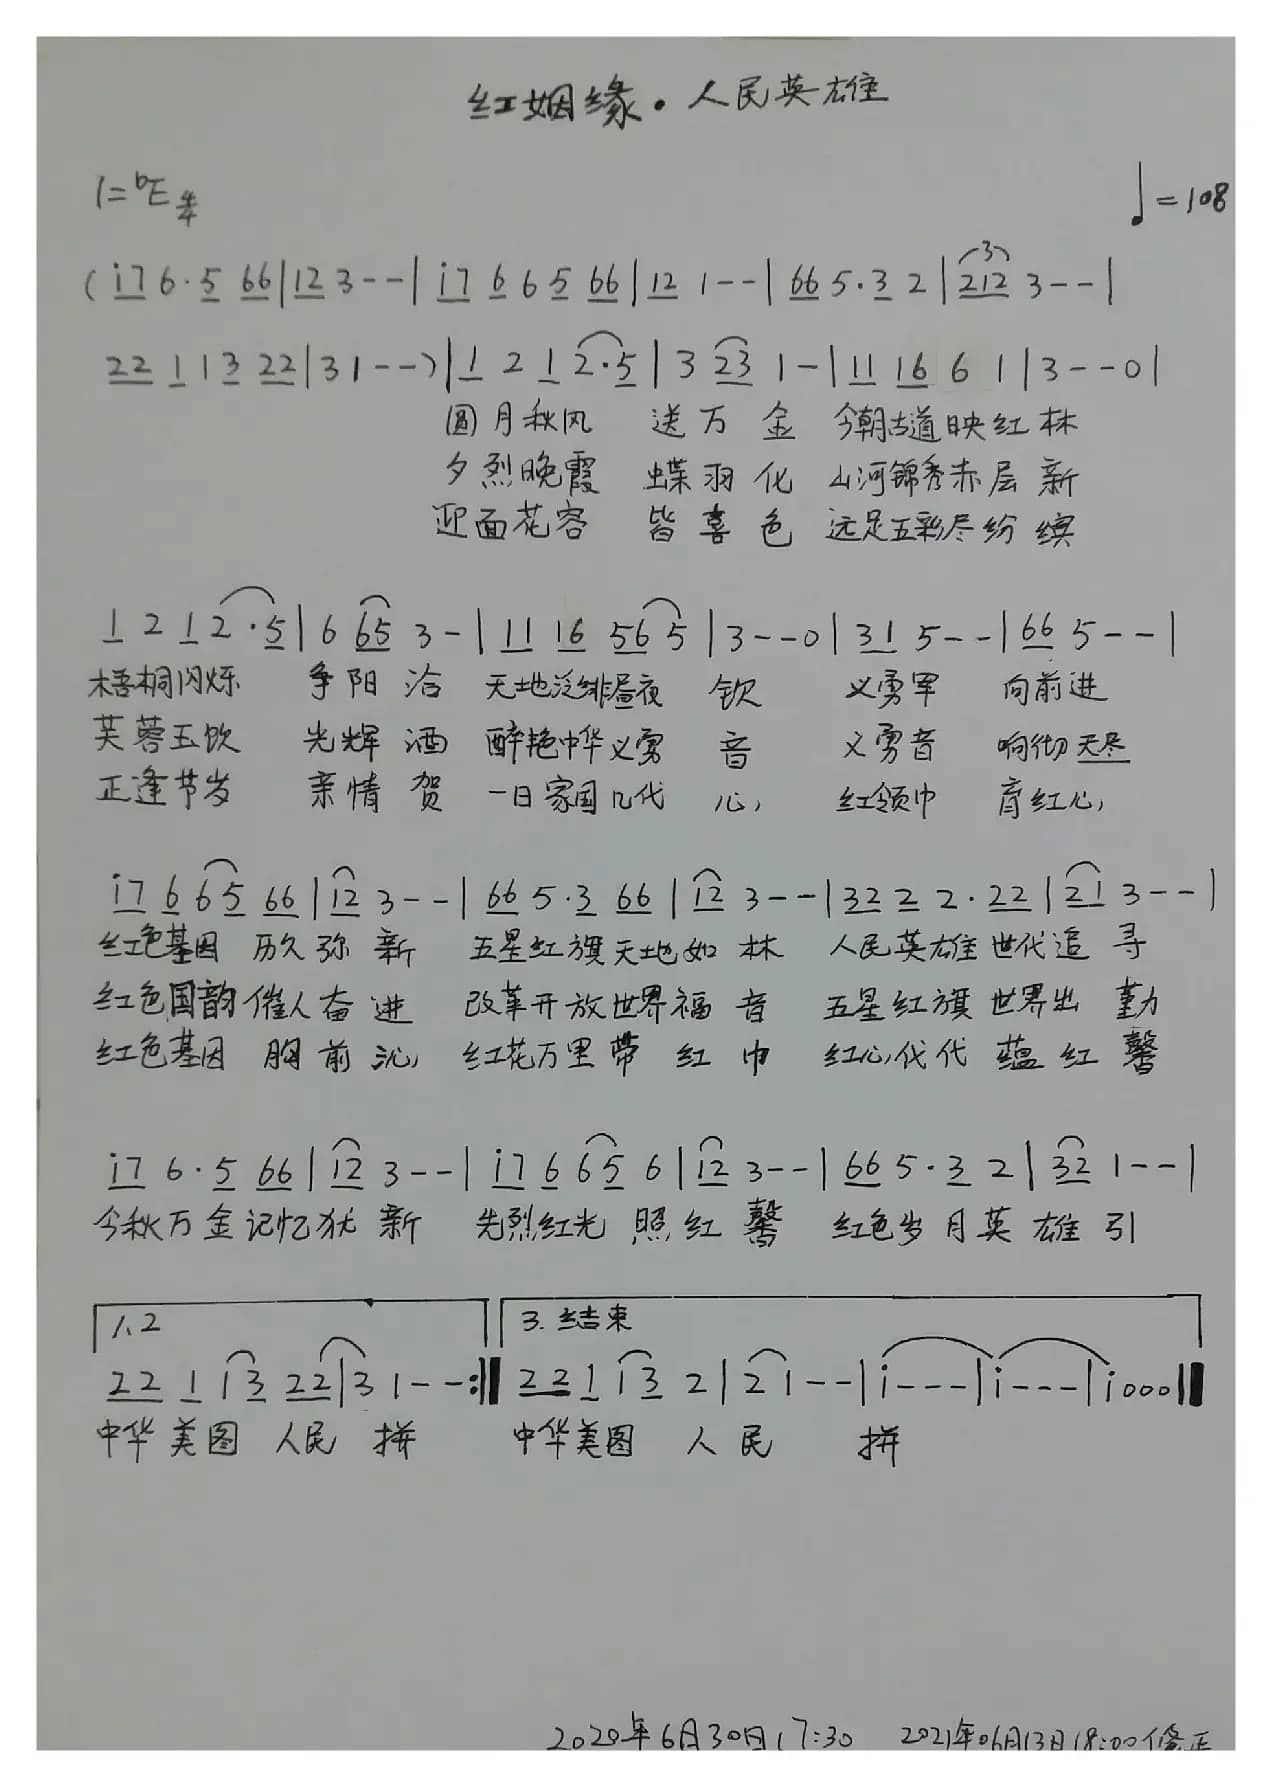 红姻缘·人民英雄
1=ᵇE 4/4 ♩=108
(i7 6·5 66|12 3--|i7 6 6 5 66|12 1--|66 5·3 2|212 3--|
22 1 1 3 22|31--)|1 2 1 2·5|3 23 1-|11 16 6 1|3--0|
圆月秋风 送万金 今朝古道映红林
夕烈晚霞 蝶羽化 山河锦秀赤层新
迎面花容 皆喜色 远足五彩尽纷缤
1 2 1 2·5|6 65 3-|11 16 56 5|3--0|31 5--|66 5--|
梧桐闪烁 争阳洽 天地泛绯昼夜 钦 义勇军 向前进
芙蓉玉饮 光辉洒 醉艳中华义勇 音 义勇音 响彻天尽
正逢节岁 亲情贺 一日家国几代 心, 红领巾 育红心,
i7 6 6 5 66|12 3--|66 5·3 66|12 3--|32 2 2·22|21 3--|
红色基因 历久弥新 五星红旗天地如林 人民英雄世代追寻
红色国韵 催人奋进 改革开放世界福音 五星红旗世界出勤
红色基因 胸前沁, 红花万里带红巾 红心代代蕴红馨
i7 6·5 66|12 3--|i7 6 6 5 6|12 3--|66 5·3 2|32 1--|
今秋万金记忆犹新 先烈红光照红馨 红色岁月英雄引
1、2 3.结束
22 1 1 3 22|3 1--:‖ 22 1 1 3 2|2 1--|i---|i---|i000‖
中华美图 人民拼 中华美图 人民 拼
2020年6月30日17:30 2021年06月13日18:00修正